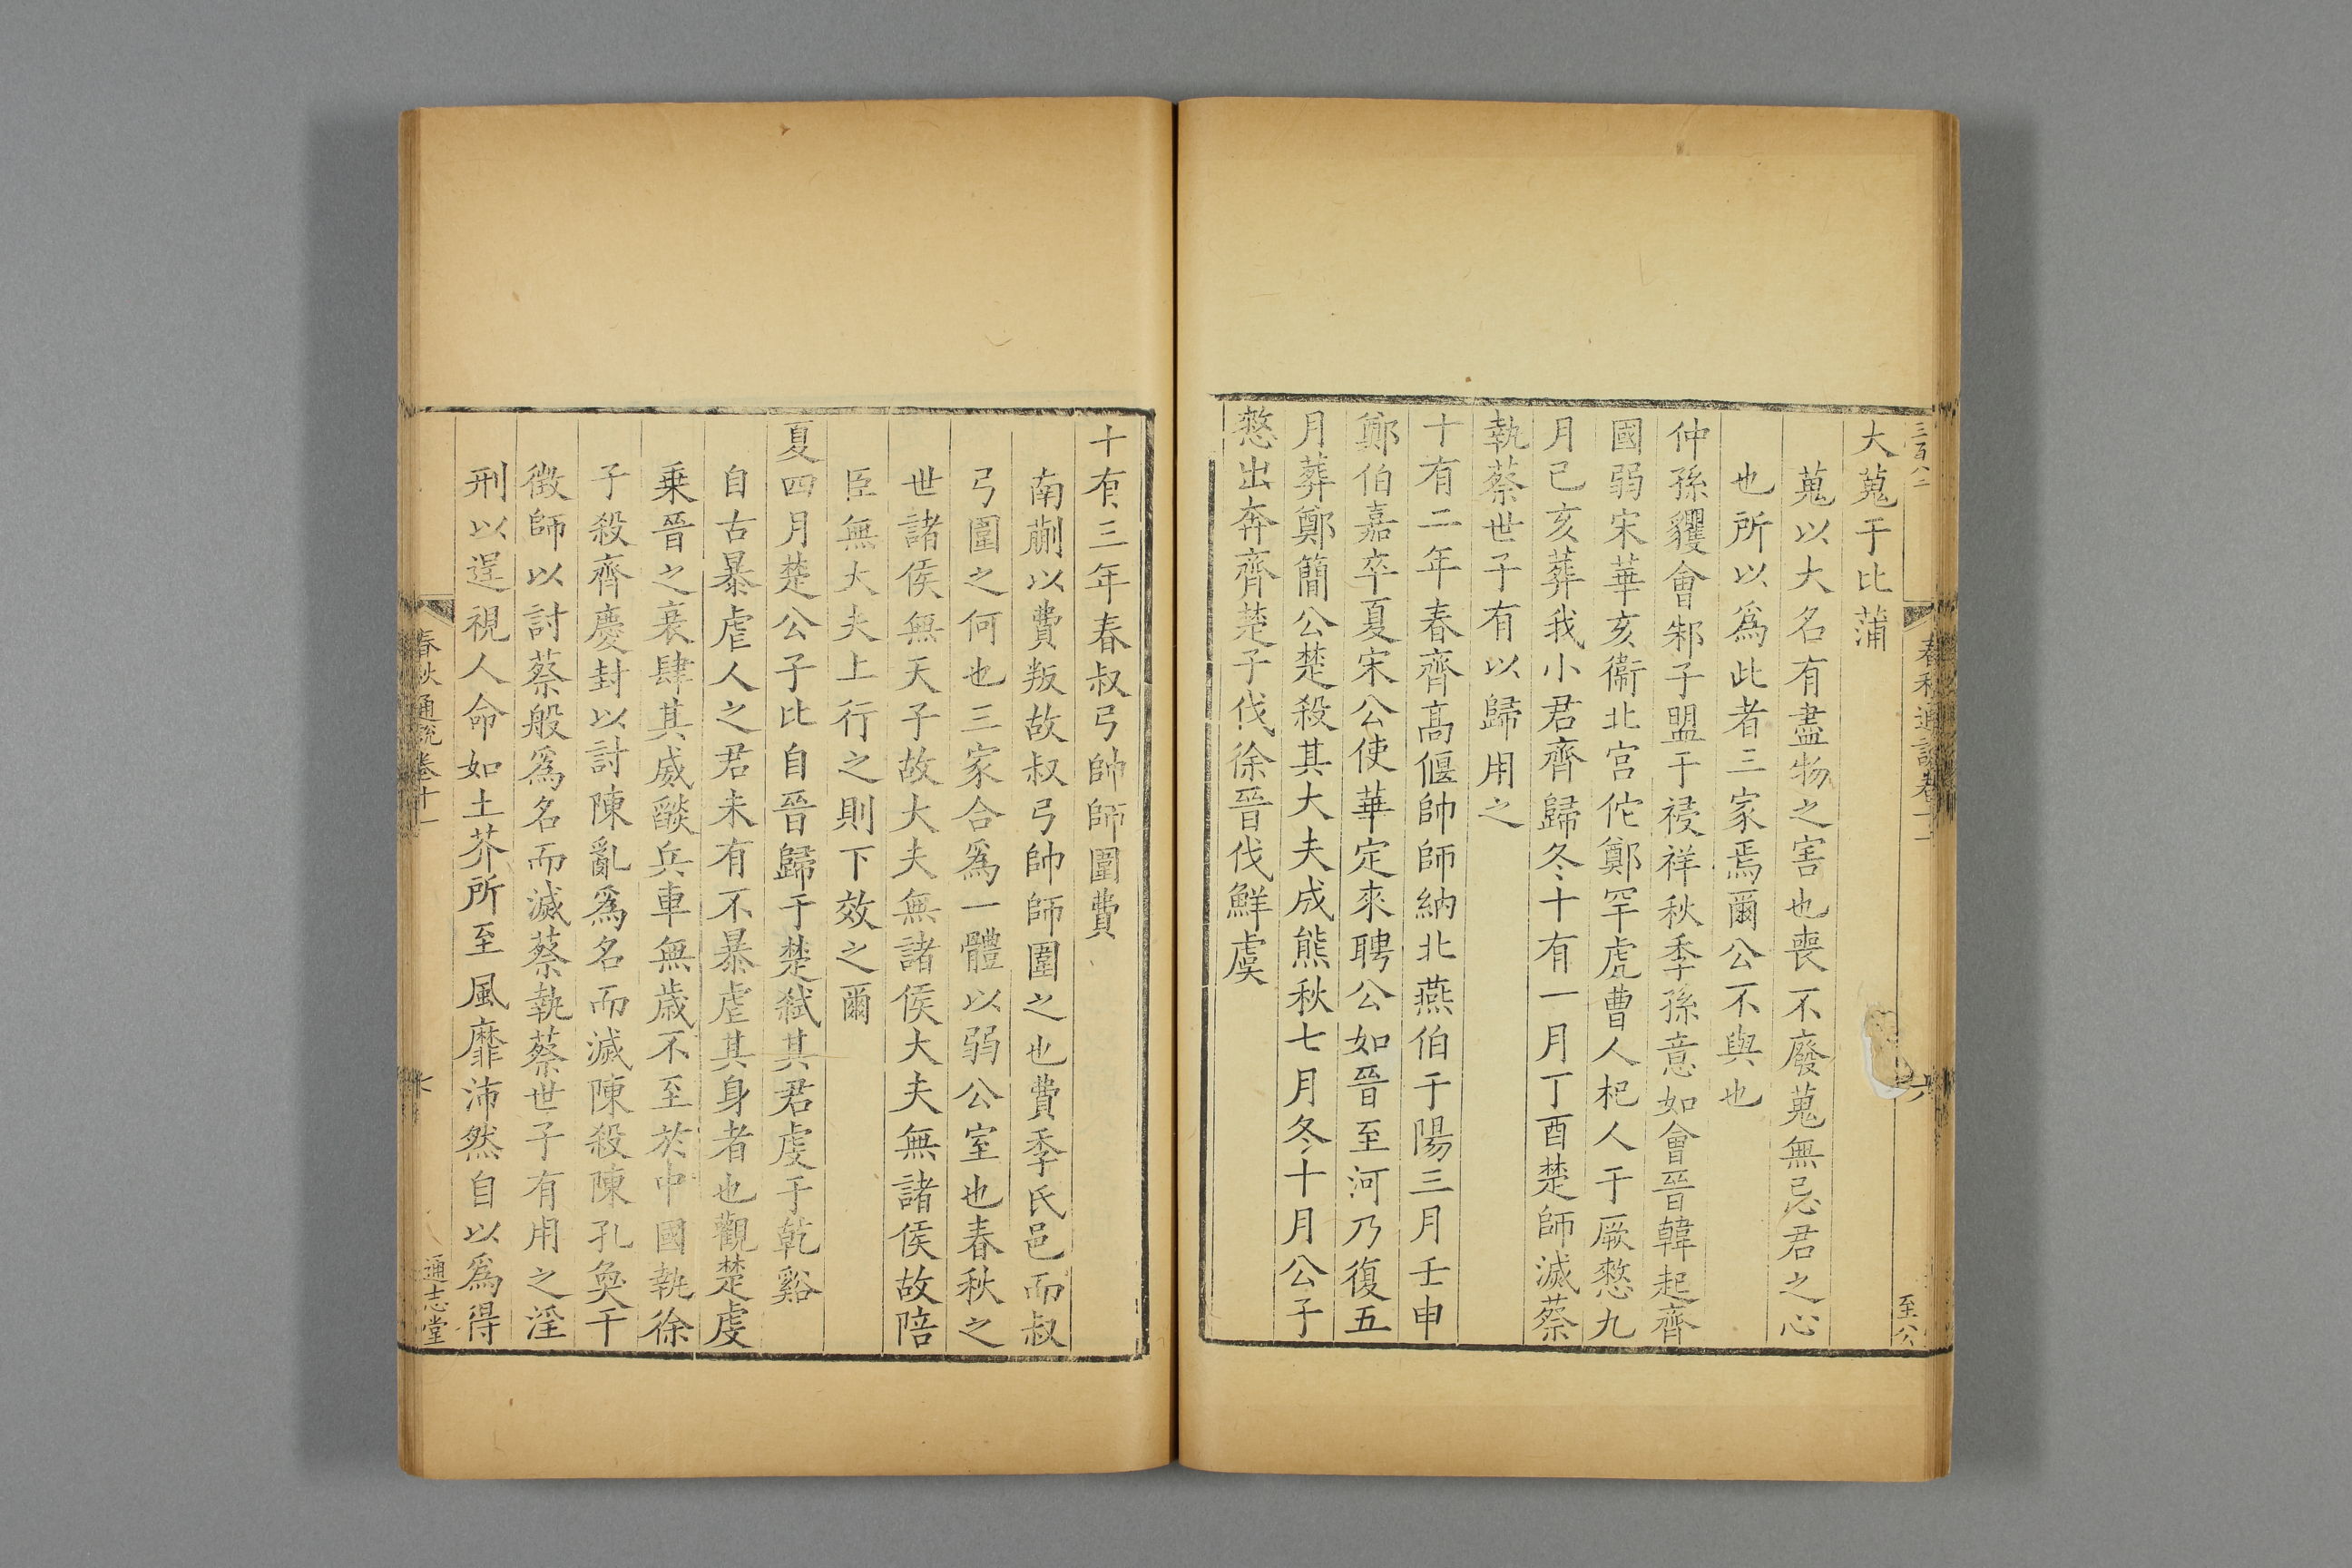 三百八二
春秋通說卷十一
六
至公
大蒐于比蒲
蒐以大名有盡物之害也喪不廢蒐無忌君之心
也所以爲此者三家焉爾公不與也
仲孫貜會邾子盟于祲祥秋季孫意如會晉韓起齊
國弱宋華亥衞北宮佗鄭罕虎曹人杞人于厥憖九
月己亥葬我小君齊歸冬十有一月丁酉楚師滅蔡
執蔡世子有以歸用之
十有二年春齊高偃帥師納北燕伯于陽三月壬申
鄭伯嘉卒夏宋公使華定來聘公如晉至河乃復五
月葬鄭簡公楚殺其大夫成熊秋七月冬十月公子
憖出奔齊楚子伐徐晉伐鮮虞
十有三年春叔弓帥師圍費
南蒯以費叛故叔弓帥師圍之也費季氏邑而叔
弓圍之何也三家合爲一體以弱公室也春秋之
世諸侯無天子故大夫無諸侯大夫無諸侯故陪
臣無大夫上行之則下效之爾
夏四月楚公子比自晉歸于楚弒其君虔于乾谿
自古暴虐人之君未有不暴虐其身者也觀楚虔
乘晉之衰肆其威燄兵車無歲不至於中國執徐
子殺齊慶封以討陳亂爲名而滅陳殺陳孔奐于
徵師以討蔡般爲名而滅蔡執蔡世子有用之淫
刑以逞視人命如土芥所至風靡沛然自以爲得
春秋通說卷十一
通志堂